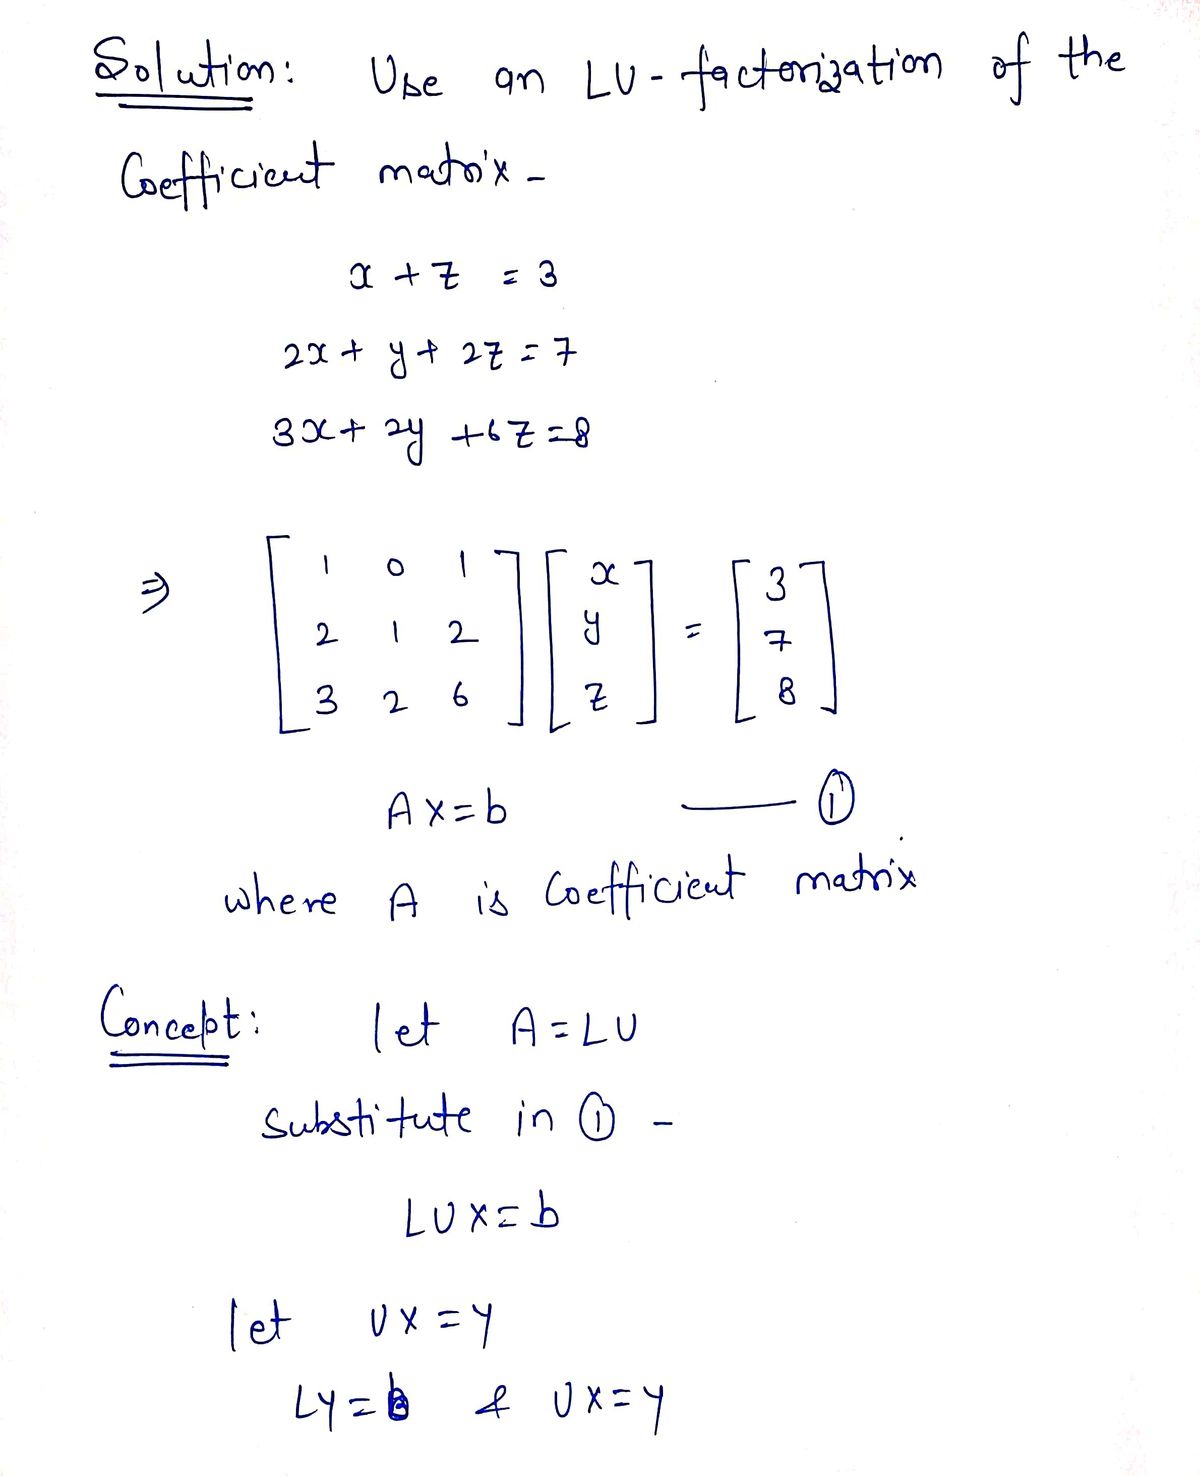 Solution: Use an LU-factorization of the
Coefficient matrix -
x + z = 3
2x + y + 2z = 7
3x + 2y + 6z = 8
⇒ [ 1 0 1 ] [ x ] = [ 3 ]
[ 2 1 2 ] [ y ] [ 7 ]
[ 3 2 6 ] [ z ] [ 8 ]
AX=b —— ①
where A is Coefficient matrix
Concept: let A=LU
Substitute in ① -
LUX=b
let UX=Y
LY=b & UX=Y